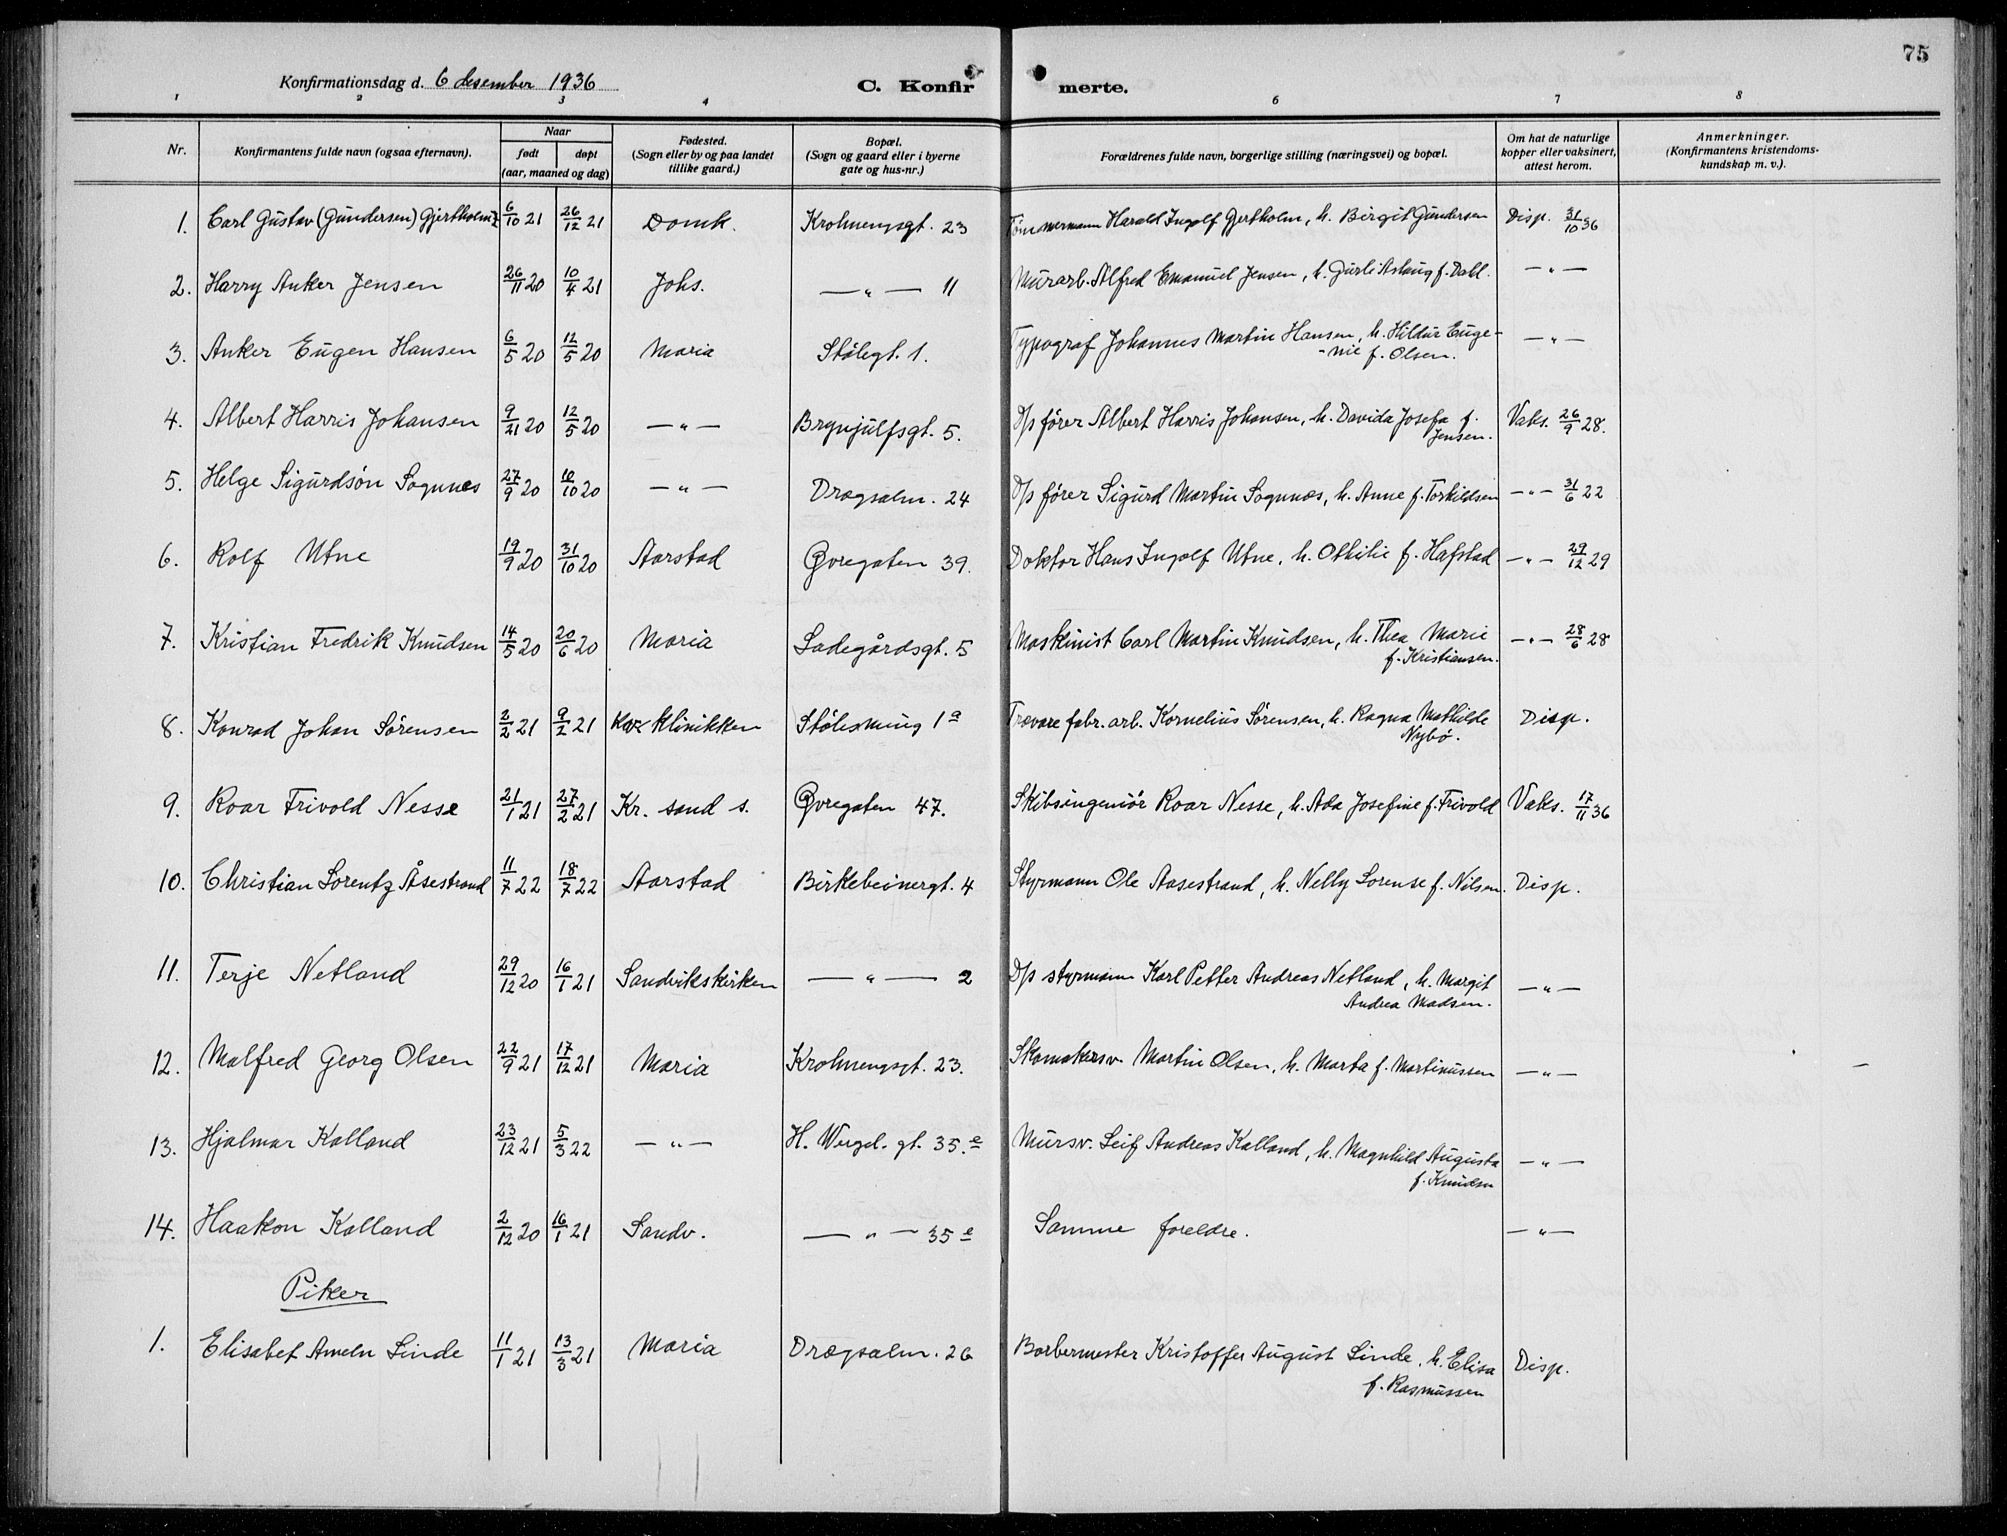 75
Konfirmationsdag d. 6 desember 1936
C. Konfirmerte.
1 2 3 4 6 7 8
Nr. Konfirmantens fulde navn (ogsaa efternavn). Naar født døpt (aar, maaned og dag) Fødested. (Sogn eller by og paa landet tillike gaard.) Bopæl. (Sogn og gaard eller i byerne gate og hus-nr.) Forældrenes fulde navn, borgerlige stilling (næringsvei) og bopæl. Om hat de naturlige kopper eller vaksinert, attest herom. Anmerkninger. (Konfirmantens kristendoms-kundskap m. v.).
1. Carl Gustav (Gundersen) Gjertholm 6/10 21 26/12 21 Domk. Krohnengsgt. 23 Tømmermann Harald Ingolf Gjertholm, h. Birgit Gundersen Disp. 31/10 36
2. Harry Anker Jensen 26/11 20 10/4 21 Johs. — " — 11 Murarb. Alfred Emanuel Jensen, h. Gurli Aslaug f. Dahl. — " —
3. Anker Eugen Hansen 6/5 20 12/5 20 Maria Stølegt. 1. Typograf Johannes Martin Hansen, h. Hildur Euge-
-nie f. Olsen. — " —
4. Albert Harris Johansen 9/21 20 12/5 20 — " — Brynjulfsgt. 5. D/s fører Albert Harris Johansen, h. Davida Josefa f.
Jensen. Vaks. 26/9 28.
5. Helge Sigurdsøn Sognnes 27/9 20 10/10 20 — " — Drægsalm. 24 D/s fører Sigurd Martin Sognnes, h. Anne f. Torkildsen — " — 31/6 22
6. Rolf Utne 19/9 20 31/10 20 Aarstad Øvregaten 39. Doktor Hans Ingolf Utne, h. Othilie f. Hafstad — " — 29/12 29
7. Kristian Fredrik Knudsen 14/5 20 20/6 20 Maria Ladegårdsgt. 5 Maskinist Carl Martin Knudsen, h. Thea Marie
f. Kristiansen. — " — 28/6 28
8. Konrad Johan Sørensen 2/2 21 9/2 21 Klinikken Stølesmug 1a Trævarefabr. arb. Kornelius Sørensen, h. Ragna Mathilde
Nybø. Disp.
9. Roar Frivold Nesse 21/1 21 27/2 21 Kr. sand s. Øvregaten 47. Skibsingeniør Roar Nesse, h. Ada Josefine f. Frivold Vaks. 17/11 36
10. Christian Lorentz Åsestrand 11/7 22 18/7 22 Aarstad Birkebeinergt. 4 Styrmann Ole Aasestrand, h. Nelly Lorense f. Nilsen. Disp.
11. Terje Netland 29/12 20 16/1 21 Sandvikskirken — " — 2 D/s styrmann Karl Petter Andreas Netland, h. Margit
Andrea Madsen. — " —
12. Malfred Georg Olsen 22/9 21 17/12 21 Maria Krohnengsgt. 23. Skomakersv. Martin Olsen, h. Marta f. Martinussen — " —
13. Hjalmar Kalland 23/12 21 5/3 22 — " — H. Wergel. gt. 35.e Mursv. Leif Andreas Kalland, h. Magnhild Augusta
f. Knudsen — " —
14. Haakon Kalland 2/12 20 16/1 21 Sandv. — " — 35 e Samme foreldre. — " —
Piker
1. Elisabet Ameln Linde 11/1 21 13/3 21 Maria Drægsalm. 26 Barbermester Kristoffer August Linde, h. Elisa
f. Rasmussen Disp.